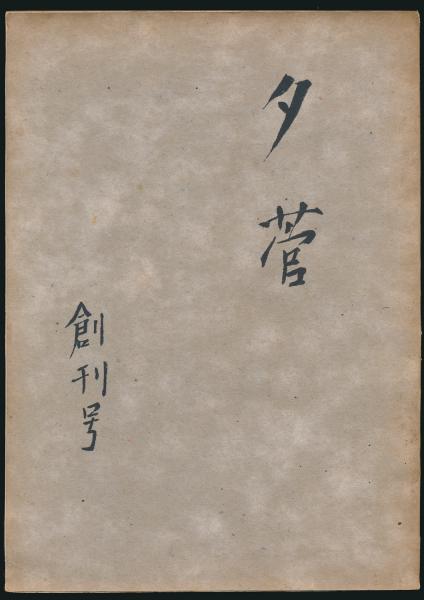 夕菅
創刊号